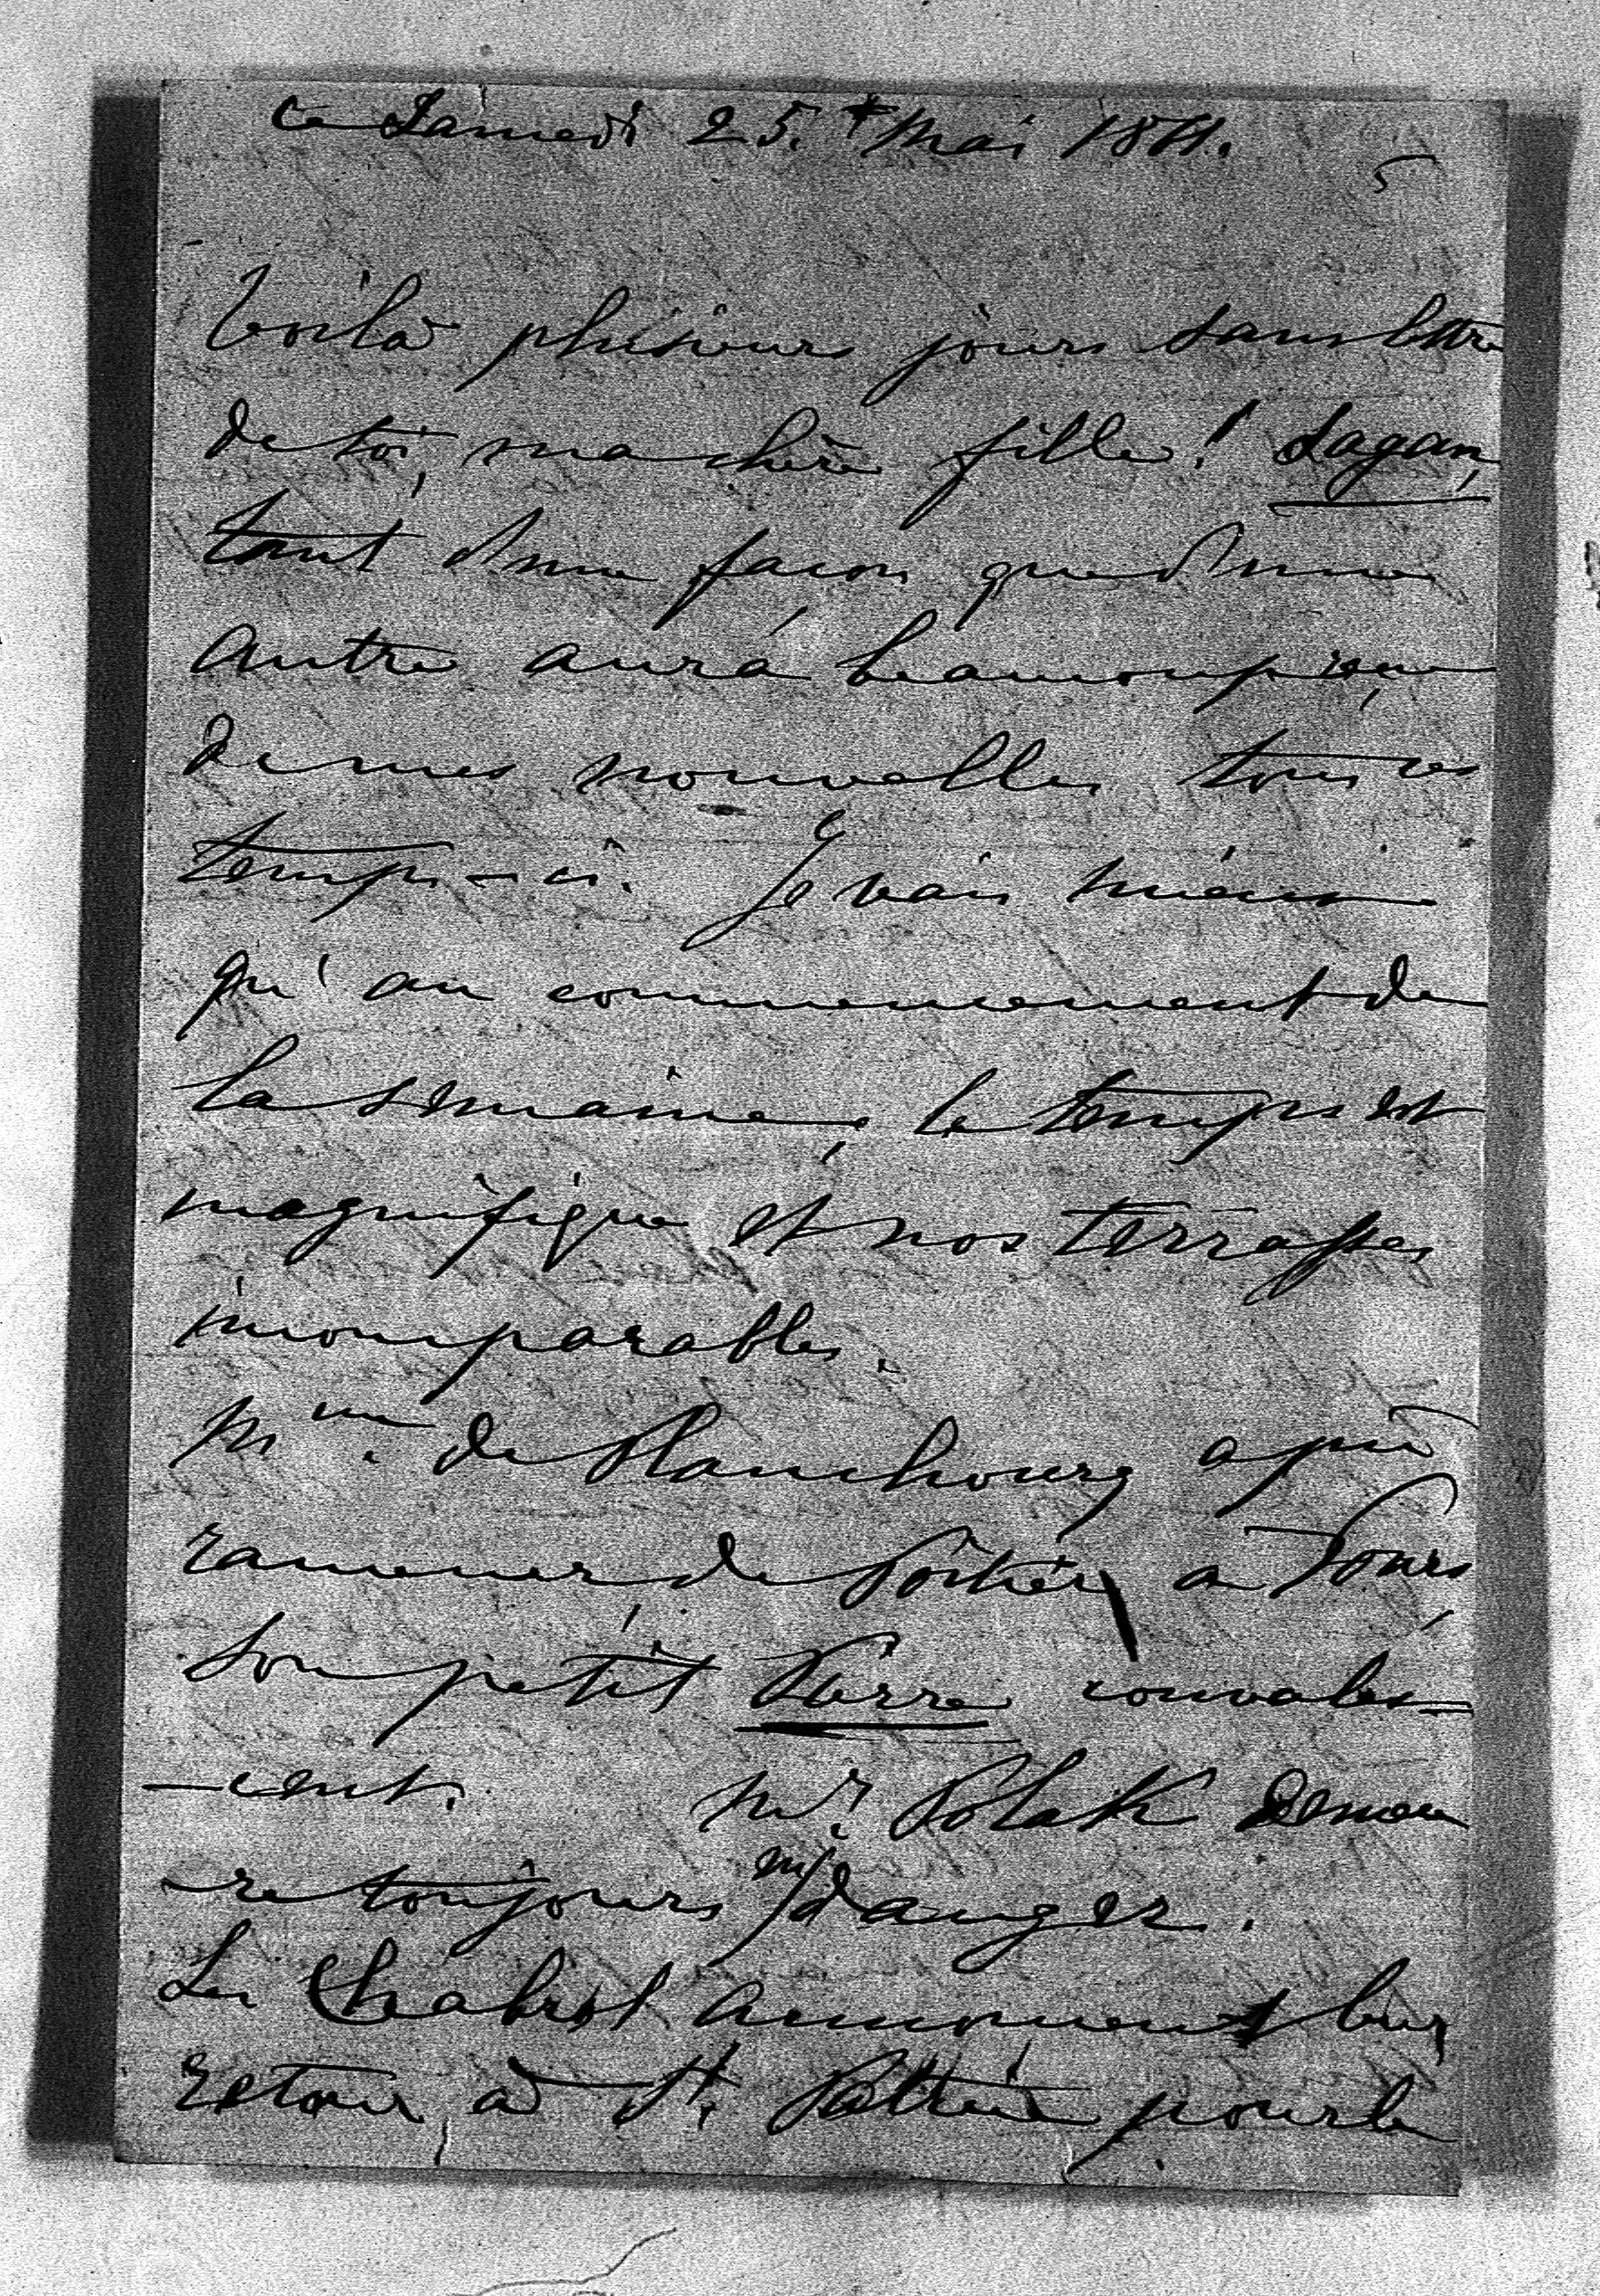 ce Samedi 25. Mai 1861.
5
Voilà plusieurs jours sans lettre
de toi, ma chère fille! Lagan,
tant d'une façon que d'une
autre aura beaucoup reçu
de mes nouvelles tous ces
temps-ci. Je vais mieux
qu'au commencement de
la semaine, le temps est
magnifique et nos terrasses
incomparables.
Mme. de Blanchourg a pu
ramener de Poitiers à Tours
son petit Pierre convales-
-cent. Mr. Polak demeu
-re toujours en danger.
Les Chabrol annoncent leur
retour à St. Patrice pour le